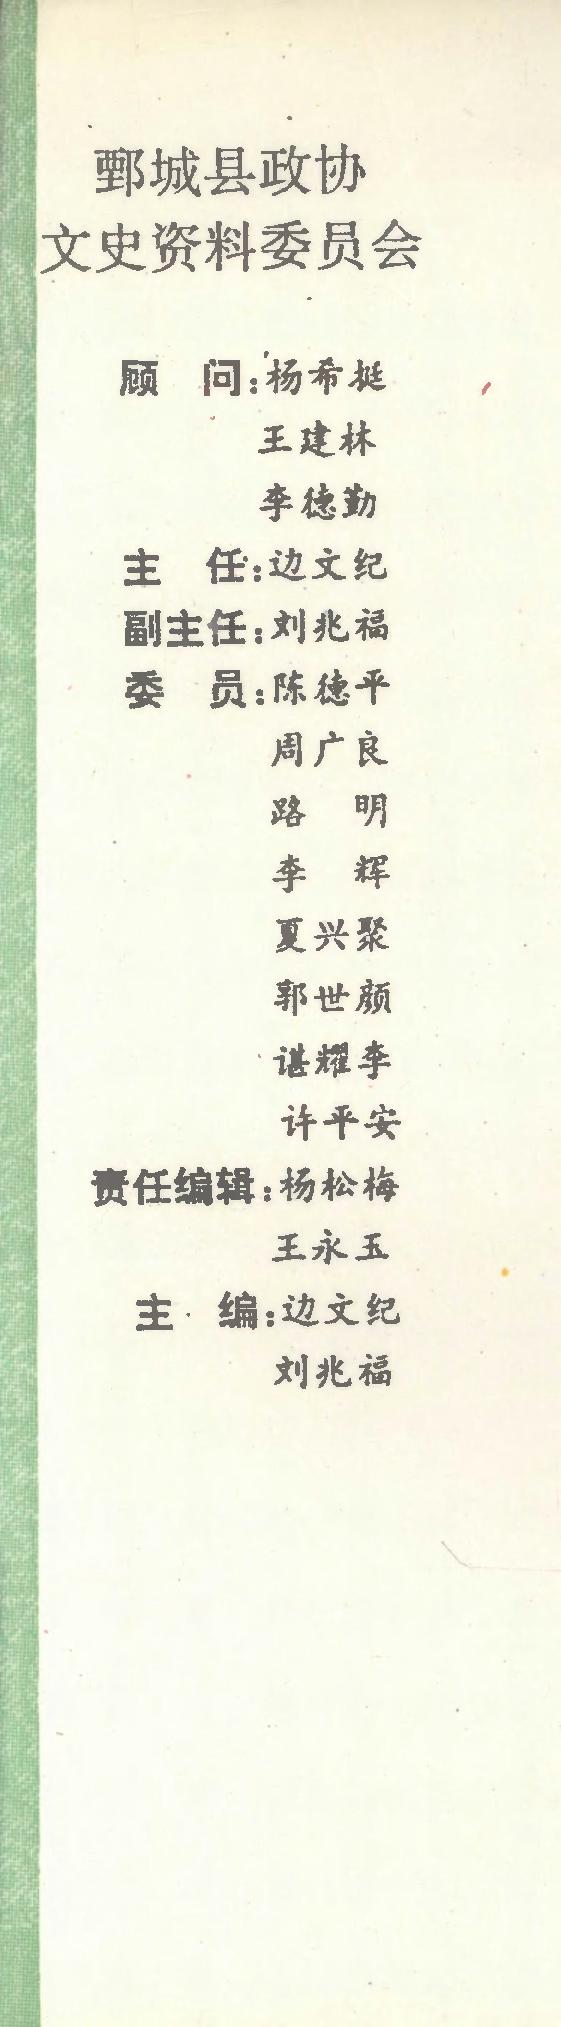 鄄城县政协
文史资料委员会
顾 问：杨希挺
王建林
李德勤
主 任：边文纪
副主任：刘兆福
委 员：陈德平
周广良
路 明
李 辉
夏兴聚
郭世颜
谌耀李
许平安
责任编辑：杨松梅
王永玉
主 编：边文纪
刘兆福